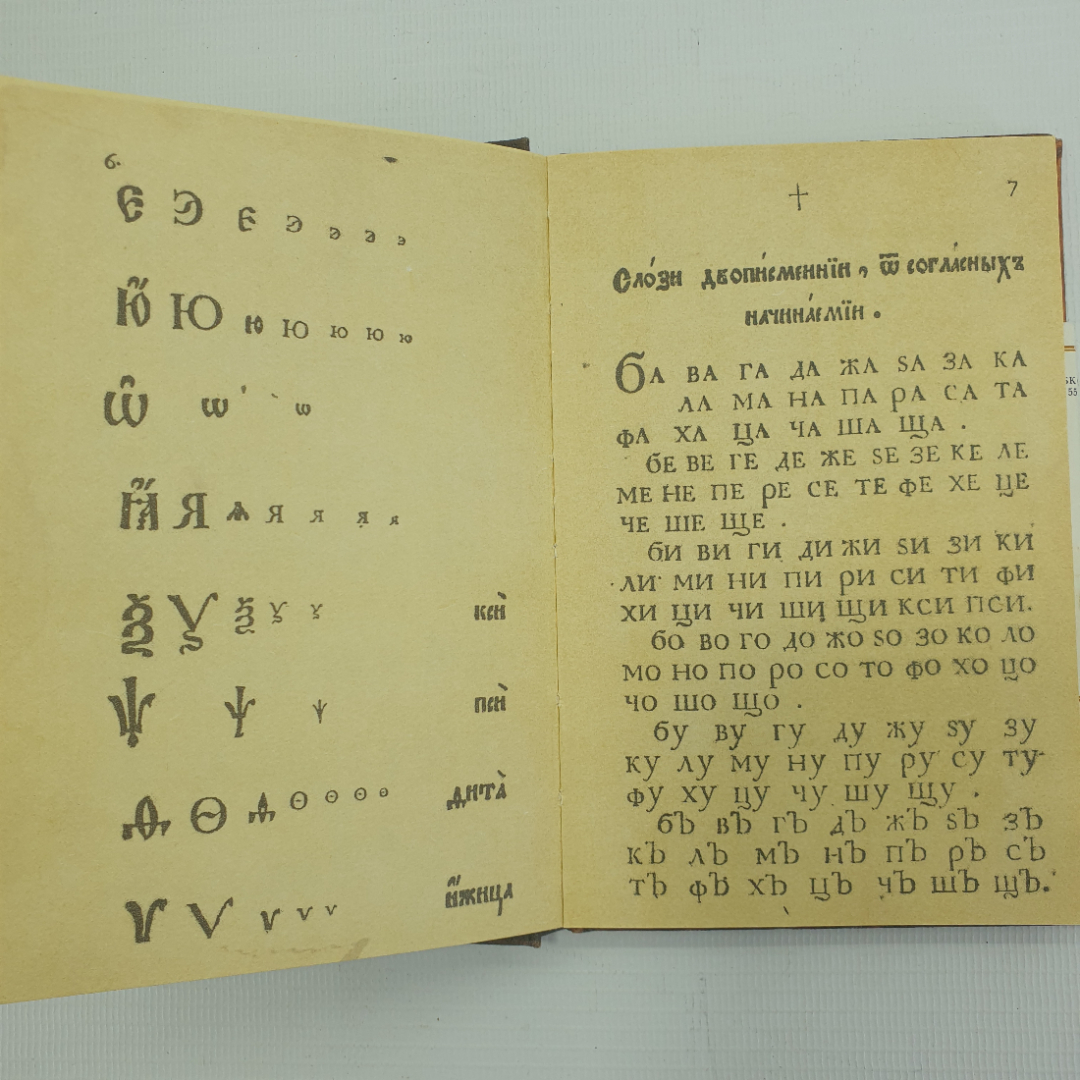 6.
Є Э є э э э э
Ю Ю ю Ю ю ю ю
Ѿ ѡ ѡ
Ꙗ Я ѧ я я я я
Ѯ Ѯ ѯ ѯ ѯ ксѝ
Ѱ ѱ ѱ псѝ
Ѳ Ѳ ѳ ѳ ѳ ѳ ѳ ѳита̀
Ѵ Ѵ ѵ ѵ ѵ и҆́жица
7
Сло́зи двопи́сменнїи, ѿ согла́сныхъ
начина́емїи.
БА ВА ГА ДА ЖА ЅА ЗА КА
ЛА МА НА ПА РА СА ТА
ФА ХА ЦА ЧА ША ЩА .
БЕ ВЕ ГЕ ДЕ ЖЕ ЅЕ ЗЕ КЕ ЛЕ
МЕ НЕ ПЕ РЕ СЕ ТЕ ФЕ ХЕ ЦЕ
ЧЕ ШЕ ЩЕ .
БИ ВИ ГИ ДИ ЖИ ЅИ ЗИ КИ
ЛИ МИ НИ ПИ РИ СИ ТИ ФИ
ХИ ЦИ ЧИ ШИ ЩИ КСИ ПСИ.
БО ВО ГО ДО ЖО ЅО ЗО КО ЛО
МО НО ПО РО СО ТО ФО ХО ЦО
ЧО ШО ЩО .
БУ ВУ ГУ ДУ ЖУ ЅУ ЗУ
КУ ЛУ МУ НУ ПУ РУ СУ ТУ
ФУ ХУ ЦУ ЧУ ШУ ЩУ .
БЪ ВЪ ГЪ ДЪ ЖЪ ЅЪ ЗЪ
КЪ ЛЪ МЪ НЪ ПЪ РЪ СЪ
ТЪ ФЪ ХЪ ЦЪ ЧЪ ШЪ ЩЪ.